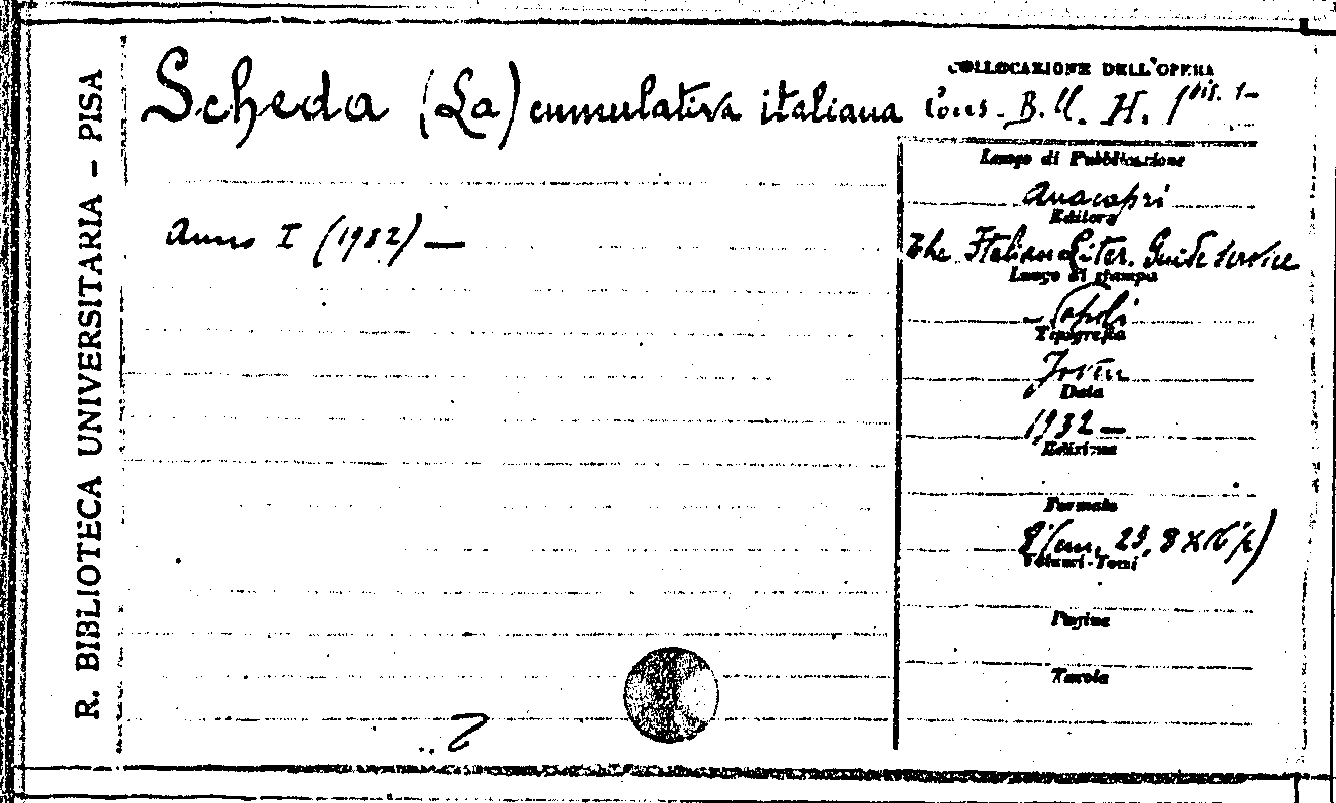 R. BIBLIOTECA UNIVERSITARIA - PISA
Scheda (La) cumulativa italiana
Anno I (1932) —
COLLOCAZIONE DELL'OPERA
Cons. B. U. H. 1 bis. 1-
Luogo di Pubblicazione
Anacapri
Editore
The Italian Liter. Guide Service
Luogo di stampa
Napoli
Tipografia
Data
1932 —
Edizione
Formato
8° (cm. 23,8 X
Volumi-Tomi
Pagine
Tavole